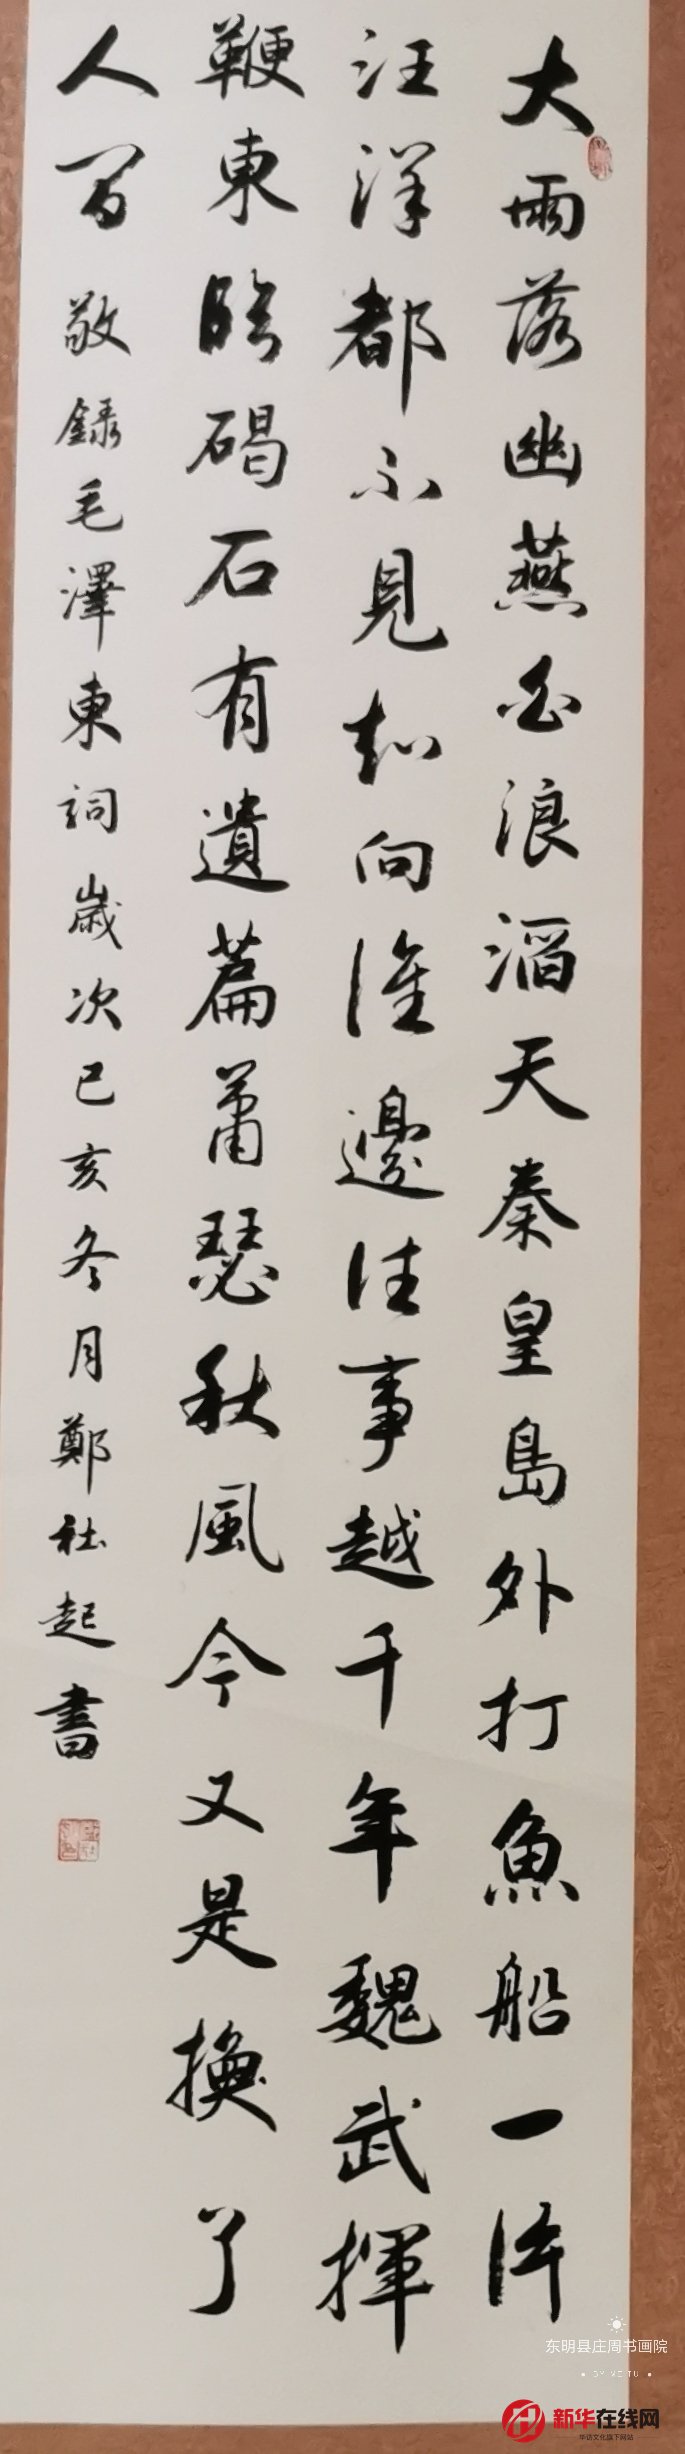 大雨落幽燕白浪滔天秦皇島外打魚船一片
汪洋都不見知向誰邊往事越千年魏武揮
鞭東臨碣石有遺篇蕭瑟秋風今又是換了
人間敬錄毛澤東詞歲次己亥冬月鄭社起書
东明县庄周书画院
BY MEITU
新华在线网
华语文化旗下网站